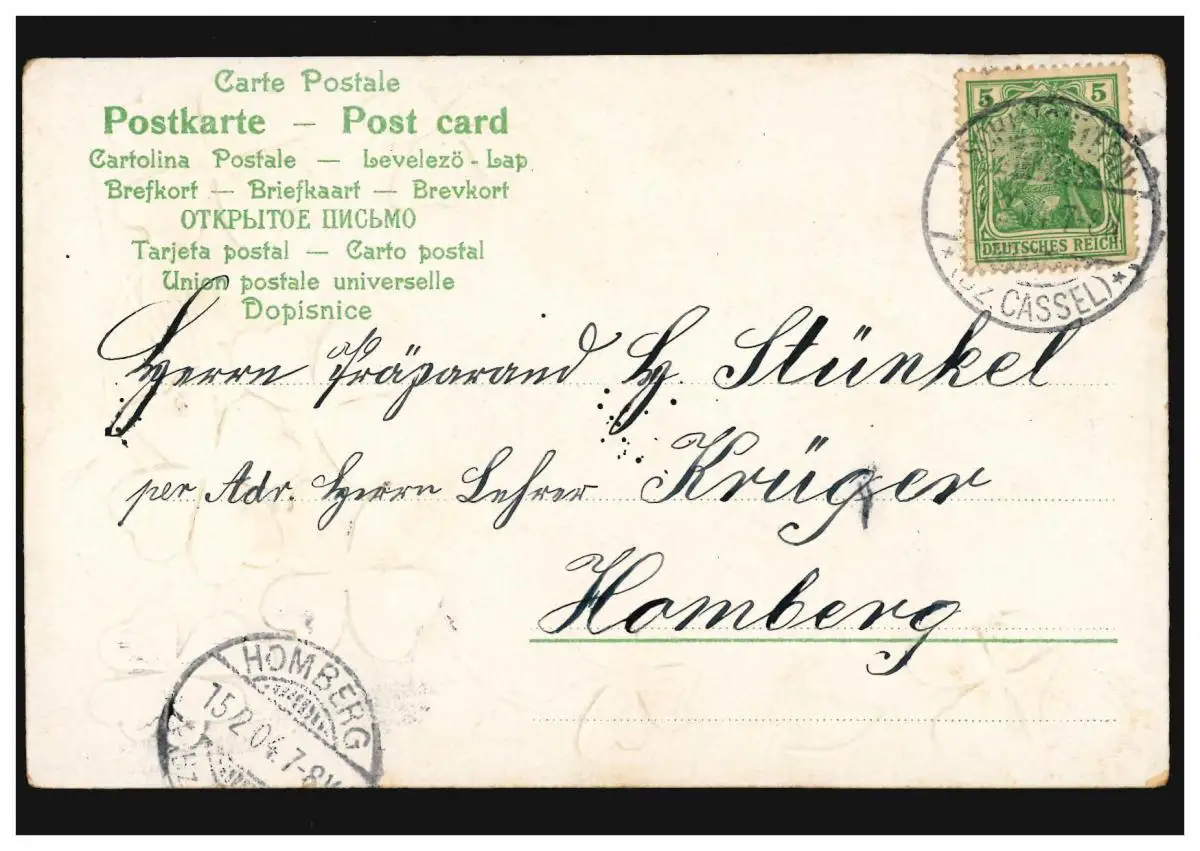 Carte Postale
Postkarte — Post card
Cartolina Postale — Levelező - Lap
Brefkort — Briefkaart — Brevkort
ОТКРЫТОЕ ПИСЬМО
Tarjeta postal — Carto postal
Union postale universelle
Dopisnice
5 5
DEUTSCHES REICH
* (BZ. CASSEL) *
Herrn Präparand H. Stünkel
per Adr. Herrn Lehrer Krüger
Homberg
HOMBERG
15/2.04.7-8V.